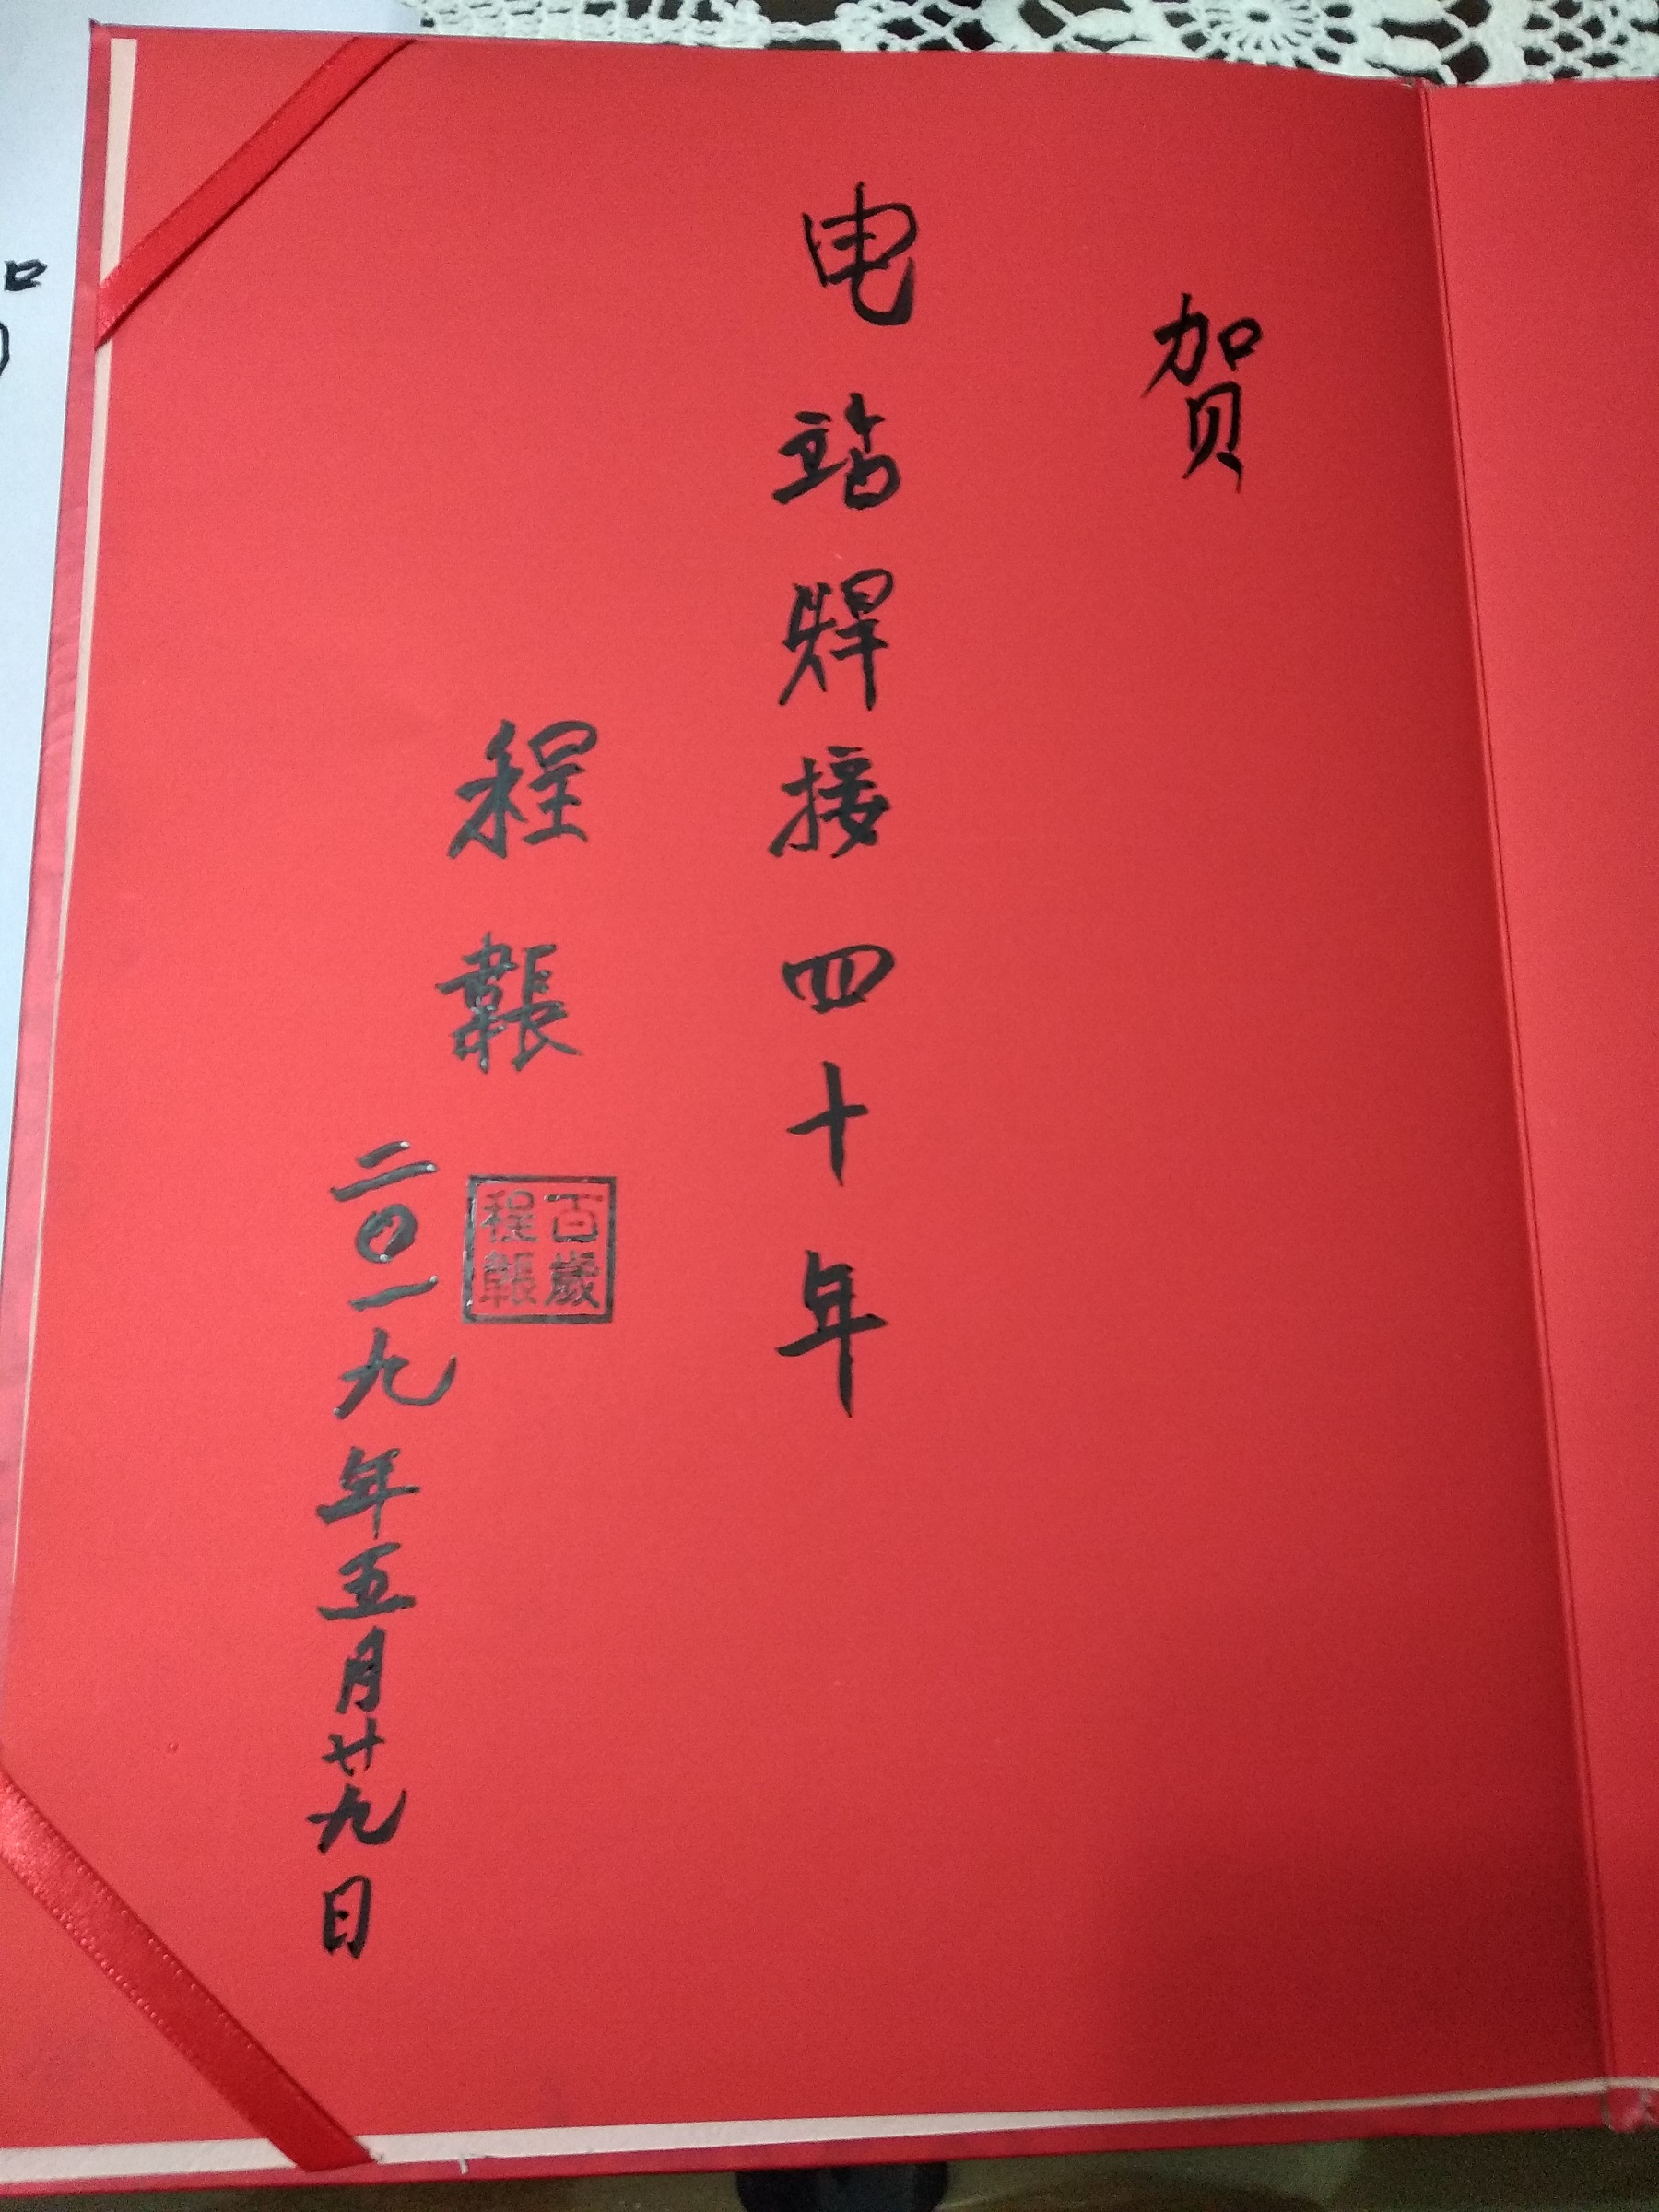 贺
电站焊接四十年
程韔
百歲
程韔
二〇一九年五月廿九日